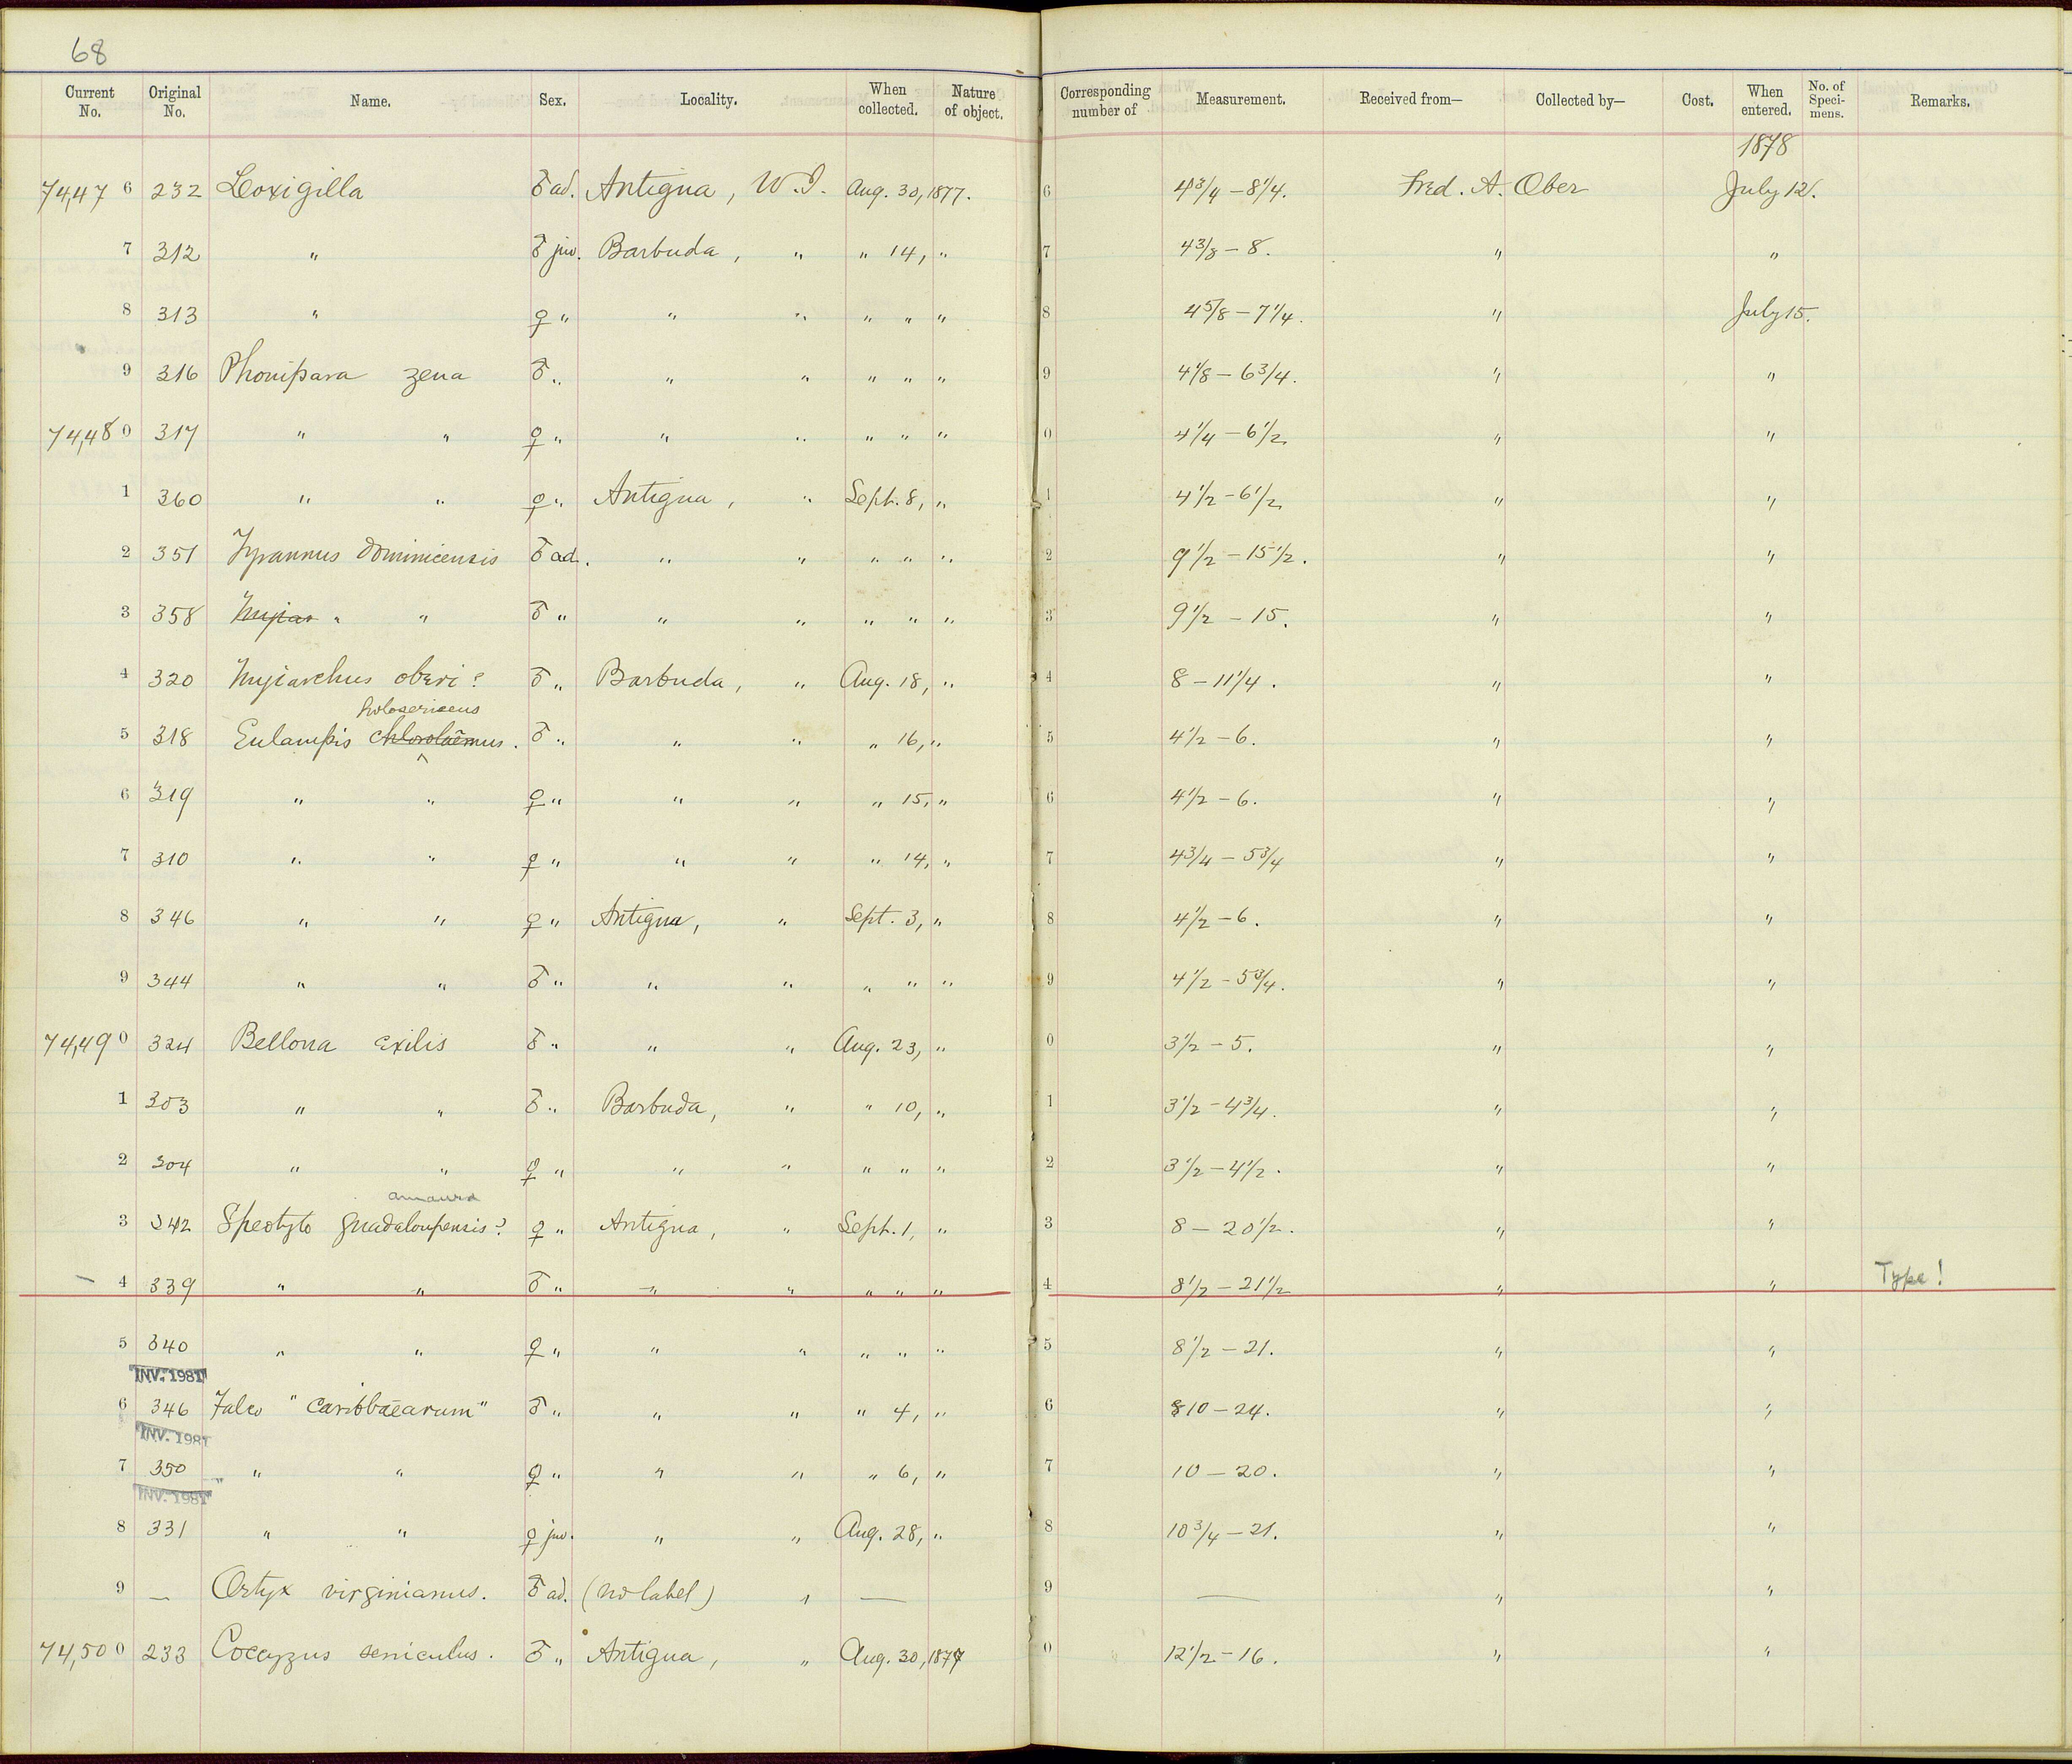 68
Current No. Original No. Name. Sex. Locality. When collected. Nature of object. Corresponding number of Measurement. Received from— Collected by— Cost. When entered. No. of Speci-mens. Remarks.
1878
74,476 232 Loxigilla ♂ ad. Antigua, W.I. Aug. 30, 1877. 6 4 3/4 – 8 1/4. Fred. A. Ober July 12.
7 312 " ♂ juv. Barbuda, " " 14, " 7 4 3/8 – 8. " "
8 313 " ♀ " " " " " " 8 4 5/8 – 7 1/4. " July 15.
9 316 Phonipara zena ♂ " " " " " " 9 4 1/8 – 6 3/4. " "
74,480 317 " " ♀ " " " " " " 0 4 1/4 – 6 1/2. " "
1 360 " " ♀ " Antigua, " Sept. 8, " 1 4 1/2 – 6 1/2 " "
2 351 Tyrannus dominicensis ♂ ad. " " " " " 2 9 1/2 – 15 1/2. " "
3 358 Myiar " " ♂ " " " " " " 3 9 1/2 – 15. " "
4 320 Myiarchus oberi? ♂ " Barbuda, " Aug. 18, " 4 8 – 11 1/4. " "
holosericeus
5 318 Eulampis chlorolaemus. ♂ " " " " 16, " 5 4 1/2 – 6. " "
6 319 " " ♀ " " " " 15, " 6 4 1/2 – 6. " "
7 310 " " ♀ " " " " 14, " 7 4 3/4 – 5 3/4 " "
8 346 " " ♀ " Antigua, " Sept. 3, " 8 4 1/2 – 6. " "
9 344 " " ♂ " " " " " " 9 4 1/2 – 5 3/4. " "
74,490 324 Bellona exilis ♂ " " " Aug. 23, " 0 3 1/2 – 5. " "
1 303 " " ♂ " Barbuda, " " 10, " 1 3 1/2 – 4 3/4. " "
2 304 " " ♀ " " " " " " 2 3 1/2 – 4 1/2. " "
amaura
3 342 Speotyto guadaloupensis? ♀ " Antigua, " Sept. 1, " 3 8 – 20 1/2. " "
– 4 339 " " ♂ " " " " " " 4 8 1/2 – 21 1/2 " " Type!
5 340 " " ♀ " " " " " " 5 8 1/2 – 21. " "
INV. 1981
6 346 Falco "caribbaearum" ♂ " " " " 4, " 6 10 – 24. " "
INV. 1981
7 350 " " ♀ " " " " 6, " 7 10 – 20. " "
INV. 1981
8 331 " " ♀ juv. " " Aug. 28, " 8 10 3/4 – 21. " "
9 — Ortyx virginianus. ♂ ad. (no label) " — 9 — " "
74,500 233 Coccyzus seniculus. ♂ " Antigua, " Aug. 30, 1877 0 12 1/2 – 16. " "